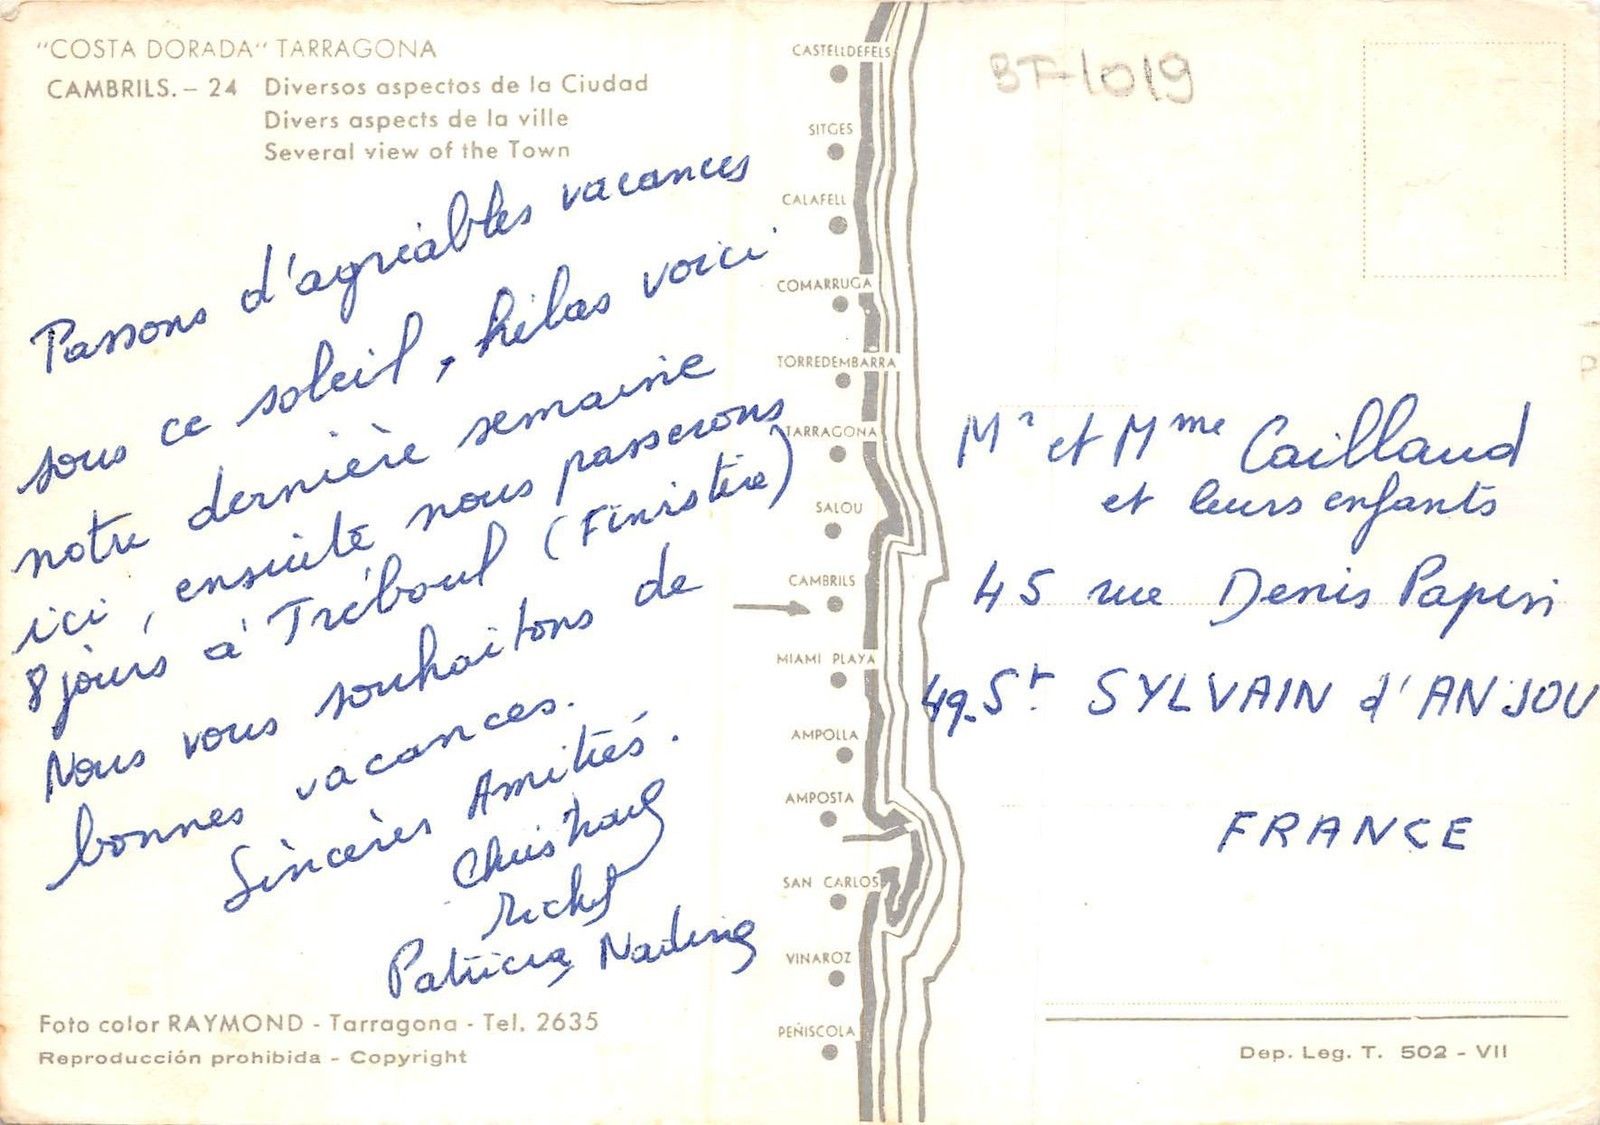 "COSTA DORADA" TARRAGONA
CAMBRILS. – 24 Diversos aspectos de la Ciudad
Divers aspects de la ville
Several view of the Town
Passons d'agréables vacances
sous ce soleil, hélas voici
notre dernière semaine
ici, ensuite nous passerons
8 jours à Tréboul (Finistère)
Nous vous souhaitons de
bonnes vacances.
Sincères Amitiés.
Christiane
Michel
Patricia Nadine
Foto color RAYMOND - Tarragona - Tel. 2635
Reproducción prohibida - Copyright
CASTELLDEFELS
SITGES
CALAFELL
COMARRUGA
TORREDEMBARRA
TARRAGONA
SALOU
CAMBRILS
MIAMI PLAYA
AMPOLLA
AMPOSTA
SAN CARLOS
VINAROZ
PEÑISCOLA
BT-1019
Mr et Mme Caillaud
et leurs enfants
45 rue Denis Papin
49. St SYLVAIN d'ANJOU
FRANCE
Dep. Leg. T. 502 - VII